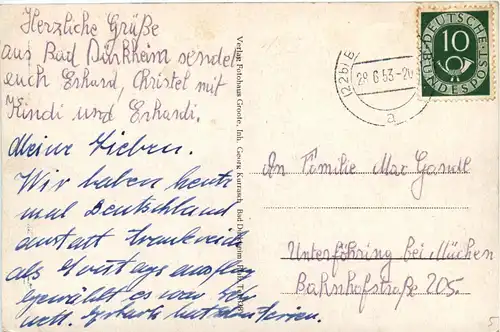 Herzliche Grüße
aus Bad Dürkheim sendet
euch Erhard, Christel mit
Heindi und Erhardi.
Meine Lieben.
Wir haben heute
mal Deutschland
anstatt Frankreich
als Sontags ausflug
gewählt es war sehr
nett. Erhard hat Ferien.
Verlag Fotohaus Groote, Inh. Georg Kurrasch, Bad Dürkheim
(22b) B
29.6.53-20
a
DEUTSCHE
BUNDESPOST
10
An Familie Max Gandl
Unterföhring bei Müchen
Bahnhofstraße 205.